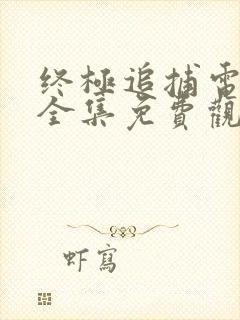 终極追捕電
全集免費觀
虾寫